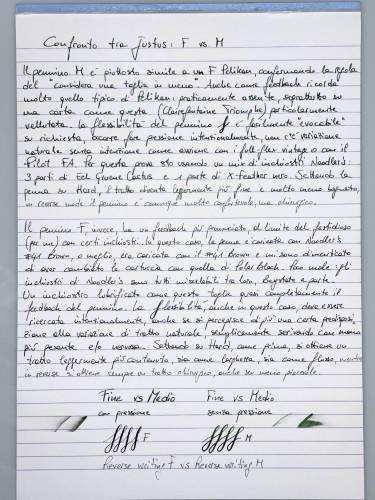 Confronto tra Justus: F vs M
Il pennino M è piuttosto simile a un F Pelikan, confermando la regola
del "considera una taglia in meno". Anche come feedback ricorda
molto quello tipico di Pelikan: praticamente assente, soprattutto su
una carta come questa (Clairefontaine Triomphe) particolarmente
vellutata. La flessibilità del pennino è facilmente "evocabile" su
richiesta, ovvero fare pressione intenzionalmente, non c'è variazione
naturale senza intenzione come avviene con i full-flex vintage o con il
Pilot FA. Per questa prova sto usando un mix di inchiostri Noodler's:
3 parti di Eel Gruene Cactus e 1 parte di X-Feather nero. Settando la
penna su Hard, il tratto diventa leggermente più fine e molto meno bagnato,
in reverse mode il pennino è comunque molto confortevole, ma chirurgico.
Il pennino F, invece, ha un feedback più pronunciato, al limite del fastidioso
(per me) con certi inchiostri. In questo caso, la penna è caricata con Noodler's
#41 Brown, o meglio, era caricata con il #41 Brown e mi sono dimenticato
di aver cambiato la cartuccia con quella di Polar Black. Poco male: gli
inchiostri di Noodler's sono tutti miscelabili tra loro, Baystate a parte.
Un inchiostro lubrificato come questo taglia quasi completamente il
feedback del pennino. La flessibilità, anche in questo caso, deve essere
ricercata intenzionalmente, anche se si percepisce un po' più una certa predisposi-
zione alla variazione di tratto naturale, semplicemente scrivendo con mano
più pesante e/o nervosa. Settando su Hard, come prima, si ottiene un
tratto leggermente più contenuto, sia come larghezza, sia come flusso, mentre
in reverse si ottiene sempre un tratto chirurgico, anche se meno piacevole.
Fine vs Medio Fine vs Medio
con pressione senza pressione
F M
Reverse writing F vs Reverse writing M